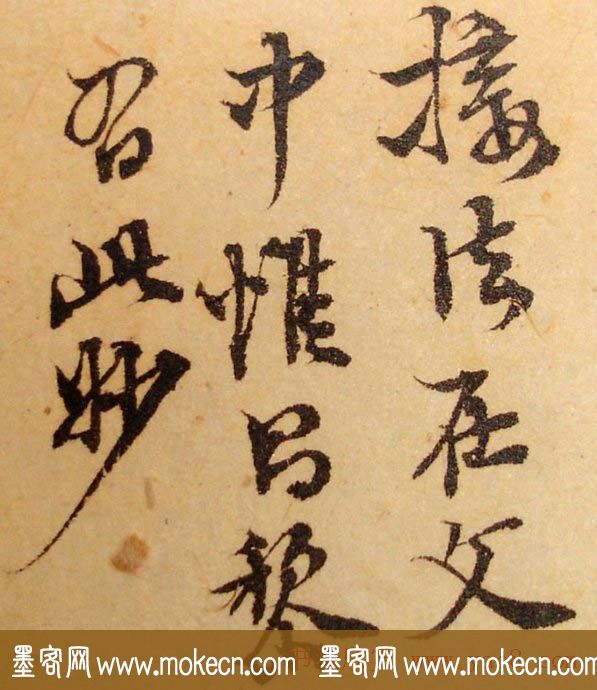 接法在文
中惟昌黎
有此妙
墨客网 www.mokecn.com 墨客网 www.mokecn.com